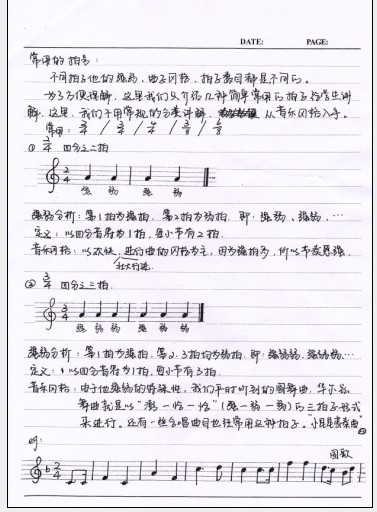 DATE: PAGE:
常用的拍号：
不同拍子他的强弱，曲子风格，拍子数目都是不同的。
为了方便理解，这里我们只介绍几种简单常用的拍子给学生讲
解，这里，我们不用常规的分类讲解，从音乐风格入手。
常用：2/4 / 3/4 / 4/4 / 3/8 / 6/8
① 2/4 四分之二拍
2/4
强 弱 强 弱
强弱分析：第1拍为强拍，第2拍为弱拍，即：强弱、强弱、…
定义：以四分音符为1拍，每小节有2拍。
音乐风格：以欢快、进行曲的风格为主，因为强拍多，所以节奏感强。
壮大行进.
② 3/4 四分之三拍.
3/4
强 弱 弱 强 弱 弱
强弱分析：第1拍为强拍，第2、3拍均为弱拍，即：强弱弱，强弱弱…
定义：以四分音符为1拍，每小节有3拍.
音乐风格：由于他强弱的特殊性，我们平时听到的圆舞曲，华尔兹
舞曲就是以“嘭－恰－恰”（强－弱－弱）的三拍子形式
来进行。还有一些合唱曲目也经常用这种拍子。
eg: 国歌
2/4